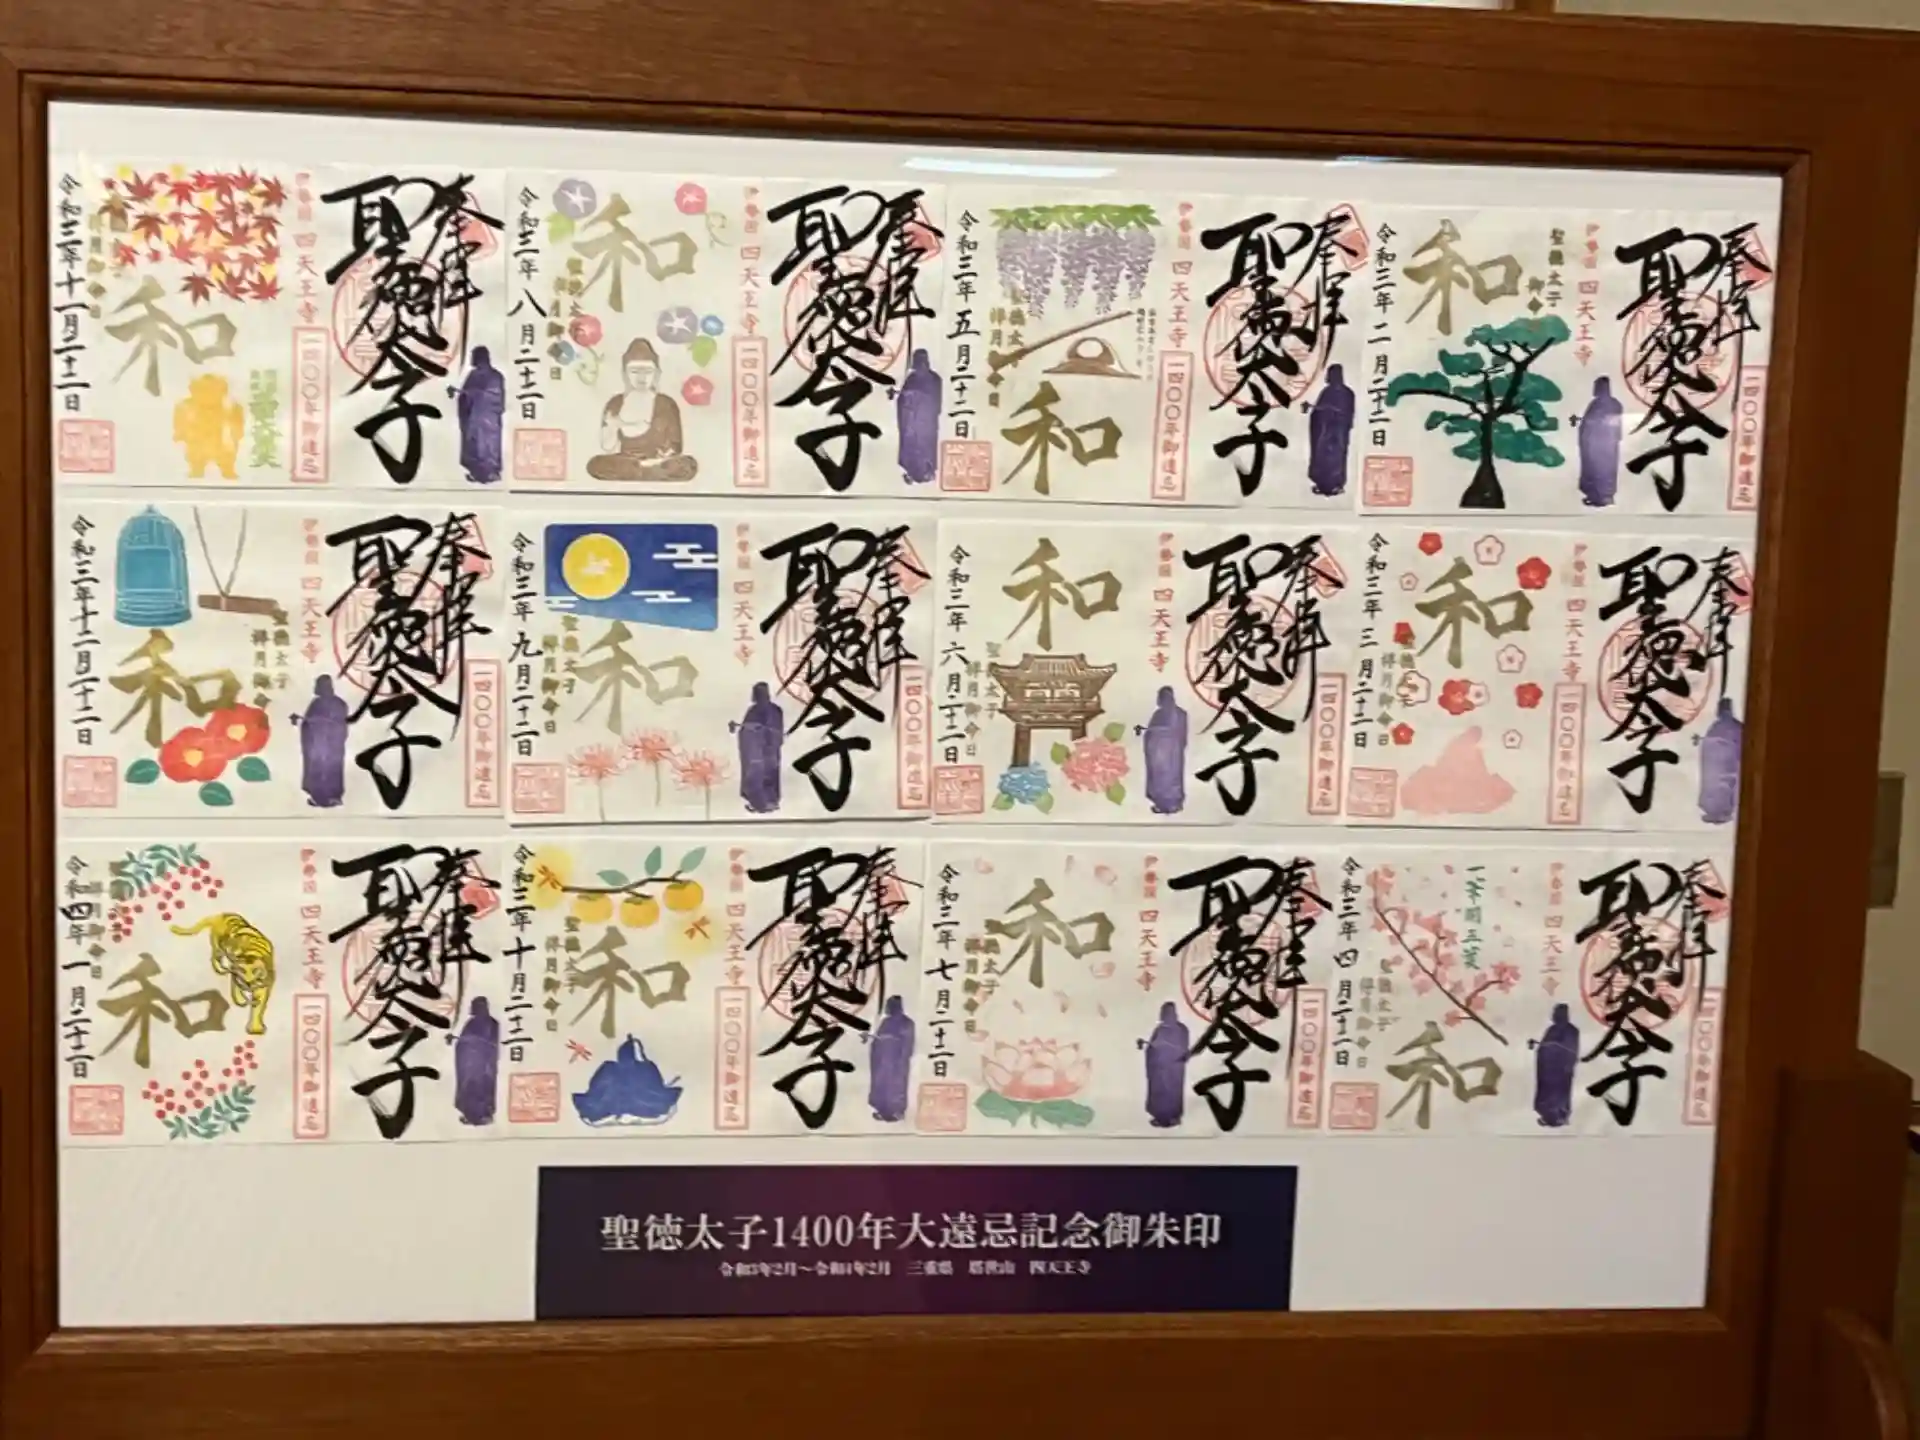 奉拝
聖徳太子
一四〇〇年御遠忌
伊勢国 四天王寺
聖徳太子
和
令和三年二月二十二日
奉拝
聖徳太子
一四〇〇年御遠忌
伊勢国 四天王寺
聖徳太子
祥月御命日
和
令和三年五月二十二日
奉拝
聖徳太子
一四〇〇年御遠忌
伊勢国 四天王寺
和
聖徳太子
祥月御命日
令和三年八月二十二日
奉拝
聖徳太子
一四〇〇年御遠忌
伊勢国 四天王寺
和
祥月御命日
令和三年十一月二十二日
奉拝
聖徳太子
一四〇〇年御遠忌
伊勢国 四天王寺
和
聖徳太子
祥月御命日
令和三年三月二十二日
奉拝
聖徳太子
一四〇〇年御遠忌
伊勢国 四天王寺
和
聖徳太子
祥月御命日
令和三年六月二十二日
奉拝
聖徳太子
一四〇〇年御遠忌
伊勢国 四天王寺
和
聖徳太子
祥月御命日
令和三年九月二十二日
奉拝
聖徳太子
一四〇〇年御遠忌
伊勢国 四天王寺
聖徳太子
祥月御命日
和
令和三年十二月二十二日
奉拝
聖徳太子
一四〇〇年御遠忌
伊勢国 四天王寺
一華開五葉
和
聖徳太子
祥月御命日
令和三年四月二十二日
奉拝
聖徳太子
一四〇〇年御遠忌
伊勢国 四天王寺
和
聖徳太子
祥月御命日
令和三年七月二十二日
奉拝
聖徳太子
一四〇〇年御遠忌
伊勢国 四天王寺
和
聖徳太子
祥月御命日
令和三年十月二十二日
奉拝
聖徳太子
一四〇〇年御遠忌
伊勢国 四天王寺
和
祥月御命日
令和四年一月二十二日
聖徳太子1400年大遠忌記念御朱印
令和3年2月～令和4年2月 三重県 塔世山 四天王寺